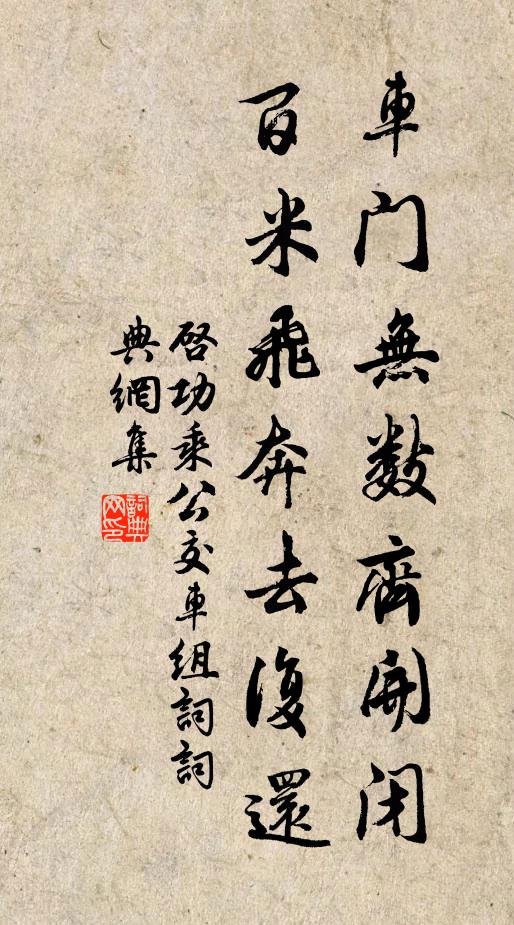 車門無數齊開闭
百米飛奔去復還
啓功乘公交車組詞詞
典網集
詞典网印